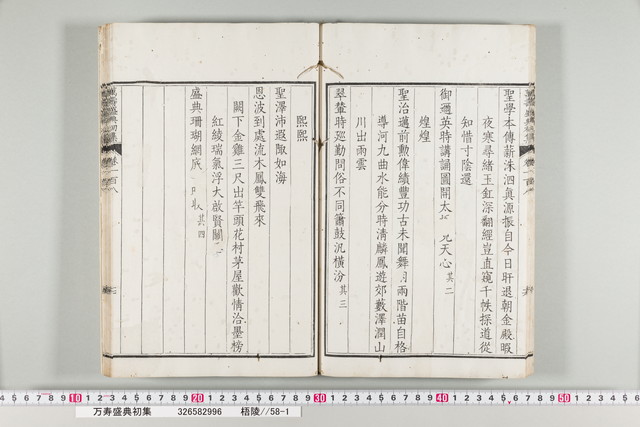 聖學本傳薪洙泗眞源振自今日旰退朝金殿暇
夜寒尋緒玉釭深翻經豈直窺千帙探道從
知惜寸陰還
御邇英時講誦圖開太 見天心其二
煌煌
聖治邁前勲偉績豐功古未聞舞 兩階苗自格
導河九曲水能分時清麟鳳遊郊藪澤潤山
川出雨雲
翠輦時巡勤問俗不同簫鼓汎橫汾其三
熙熙
聖澤沛遐陬如海
恩波到處流木鳳雙飛來
闕下金雞三尺出竿頭花村茅屋歡情洽墨榜
紅綾瑞氣浮大啟賢關
盛典珊瑚網 其四
萬壽盛典初集
卷一百八
万寿盛典初集 326582996 梧陵//58-1
10 20 30 40 50